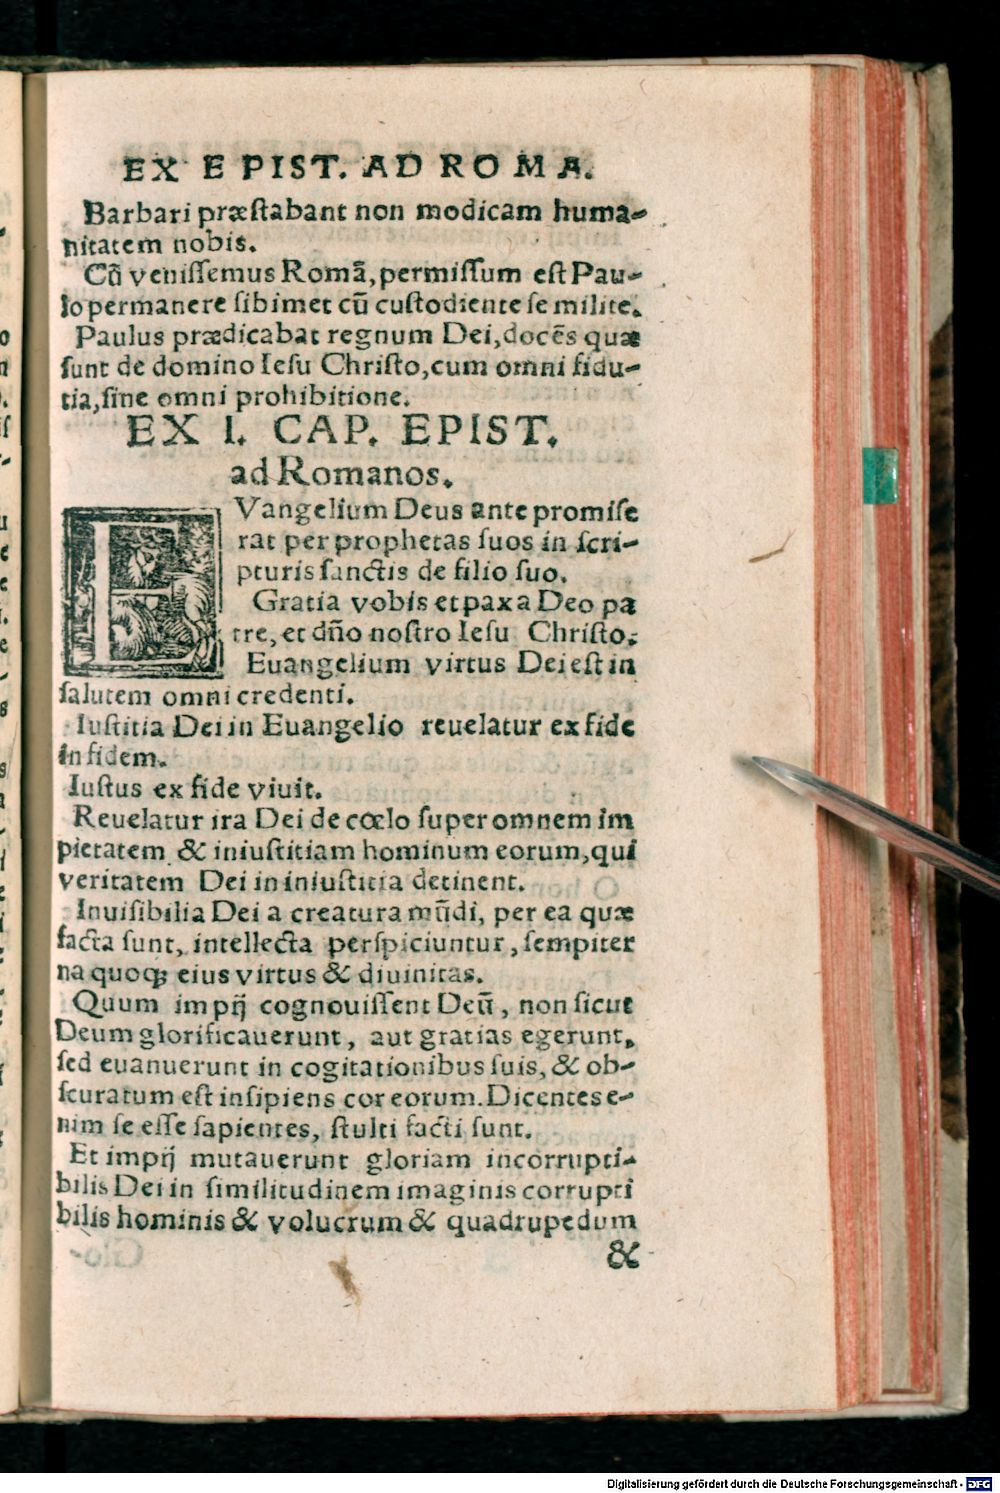 EX EPIST. AD ROMA.
Barbari præſtabant non modicam huma-
nitatem nobis.
Cũ veniſſemus Romã, permiſſum eſt Pau-
lo permanere ſibimet cũ cuſtodiente ſe milite.
Paulus prædicabat regnum Dei, docẽs quæ
ſunt de domino Ieſu Chriſto, cum omni fidu-
tia, ſine omni prohibitione.
EX I. CAP. EPIST.
ad Romanos.
EVangelium Deus ante promiſe
rat per prophetas ſuos in ſcri-
pturis ſanctis de filio ſuo.
Gratia vobis et pax a Deo pa
tre, et dño noſtro Ieſu Chriſto.
Euangelium virtus Dei eſt in
ſalutem omni credenti.
Iuſtitia Dei in Euangelio reuelatur ex fide
in fidem.
Iuſtus ex fide viuit.
Reuelatur ira Dei de cœlo ſuper omnem im
pietatem & iniuſtitiam hominum eorum, qui
veritatem Dei in iniuſtitia detinent.
Inuiſibilia Dei a creatura mũdi, per ea quæ
facta ſunt, intellecta perſpiciuntur, ſempiter
na quoqꝫ eius virtus & diuinitas.
Quum impij cognouiſſent Deũ, non ſicut
Deum glorificauerunt, aut gratias egerunt,
ſed euanuerunt in cogitationibus ſuis, & ob-
ſcuratum eſt inſipiens cor eorum. Dicentes e-
nim ſe eſſe ſapientes, ſtulti facti ſunt.
Et impij mutauerunt gloriam incorrupti-
bilis Dei in ſimilitudinem imaginis corrupti
bilis hominis & volucrum & quadrupedum
&
Digitalisierung gefördert durch die Deutsche Forschungsgemeinschaft - DFG